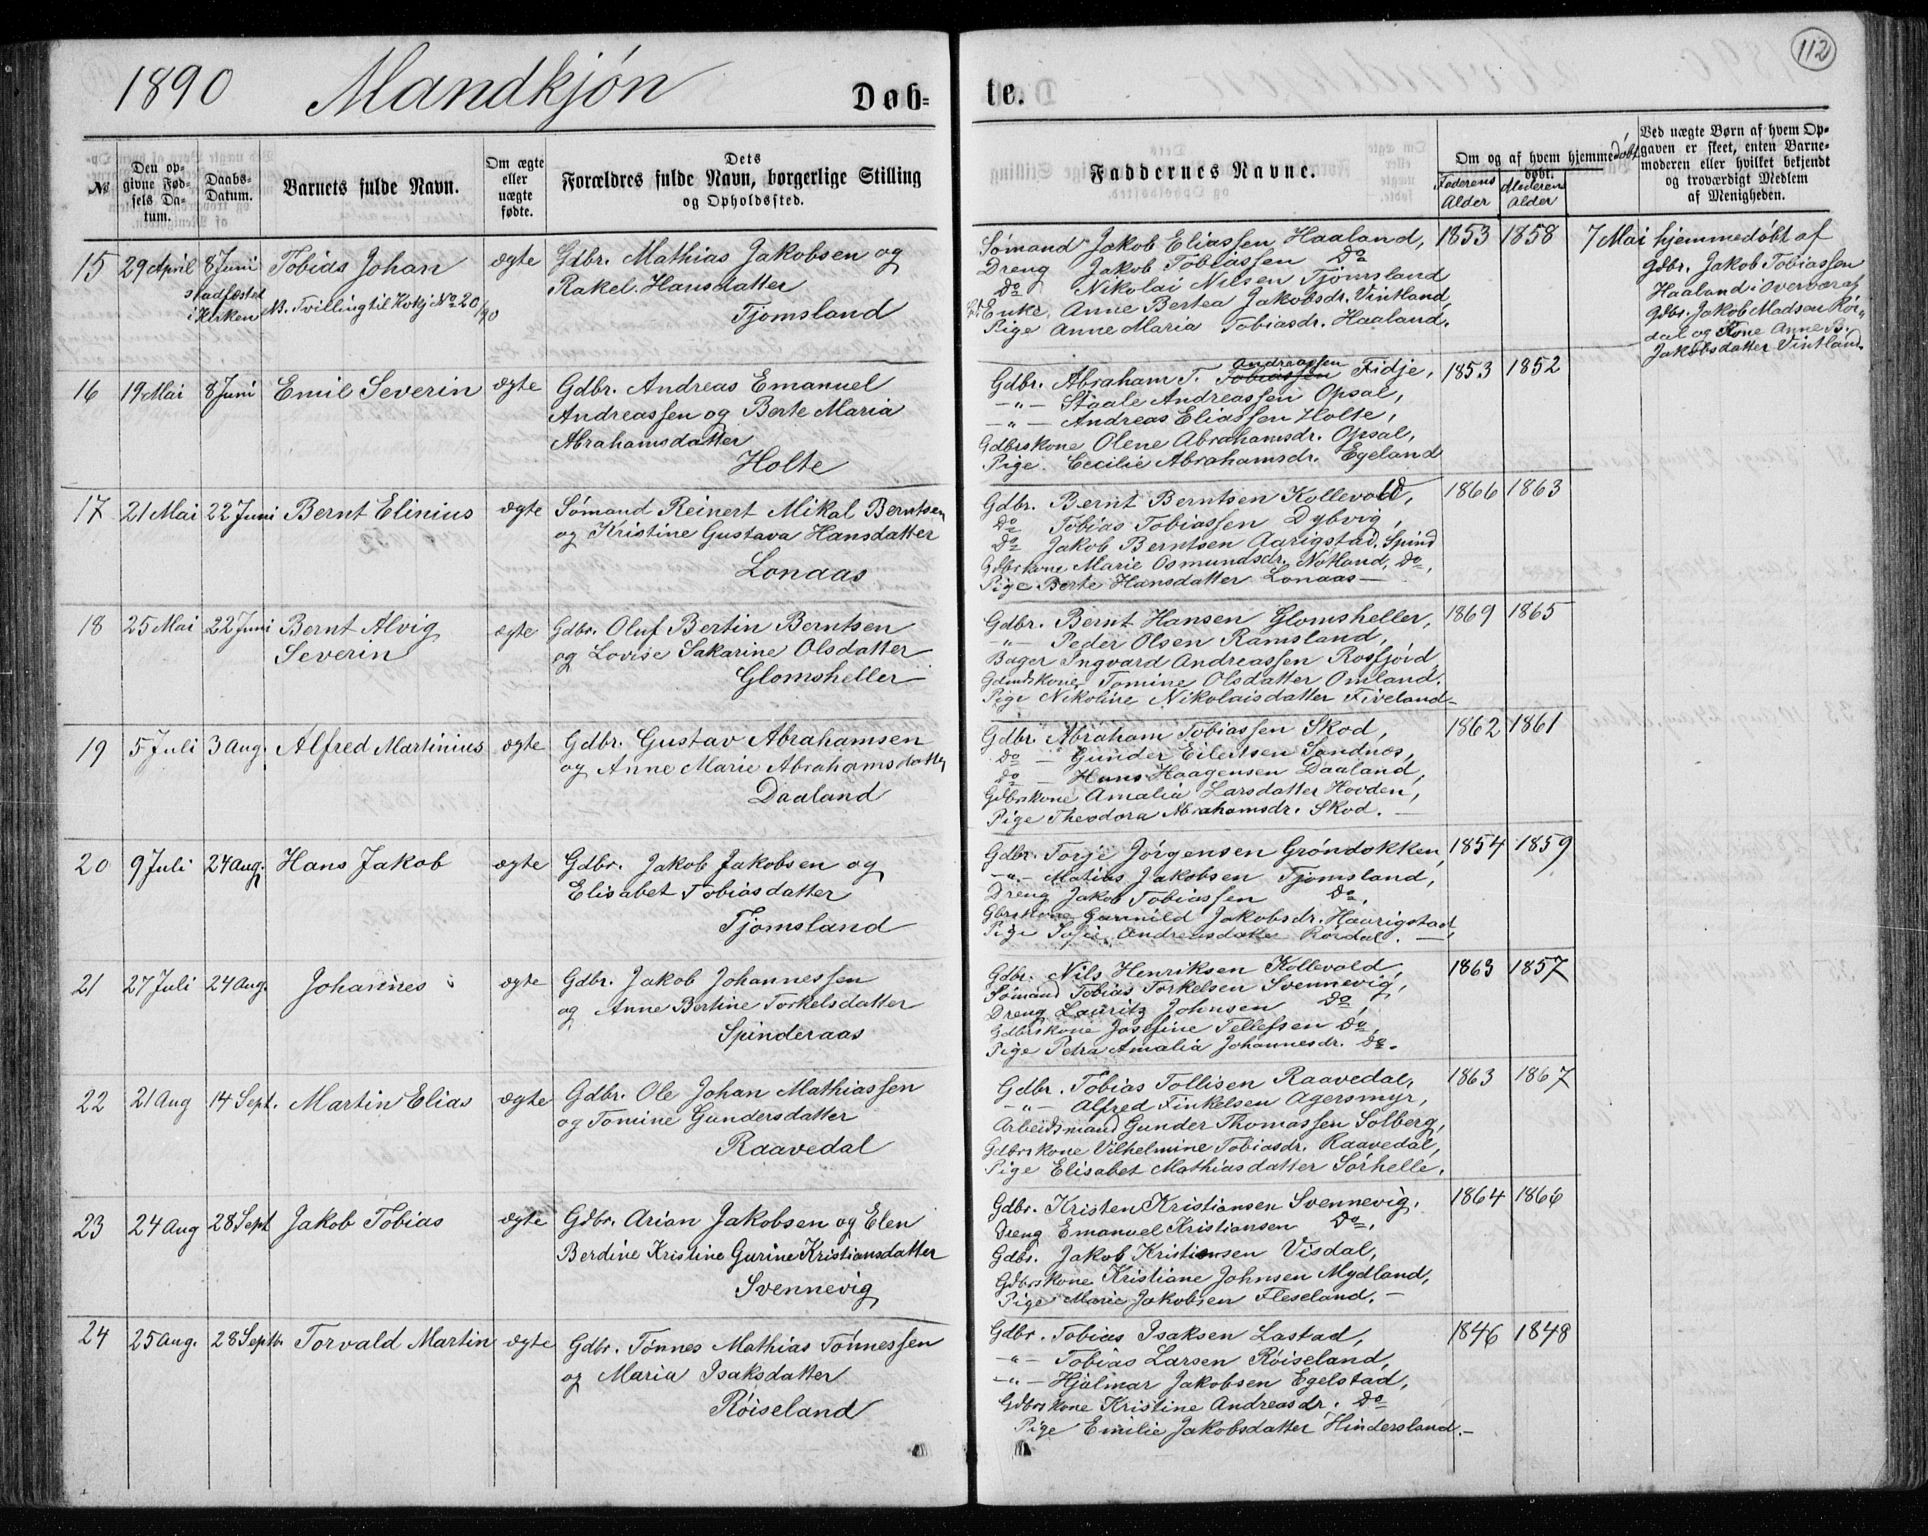 112
1890 Mandkjøn Døb=
te.
№
Den op=
givne Fød=
sels Da=
tum.
Daabs=
Datum.
Barnets fulde Navn.
Om ægte
eller
uægte
fødte.
Dets
Forældres fulde Navn, borgerlige Stilling
og Opholdssted.
Faddernes Navne.
Om og af hvem hjemme=
døbt.
Faderens
Alder
Moderens
Alder
døbt
Ved uægte Børn af hvem Op=
gaven er skeet, enten Barne=
moderen eller hvilket bekjendt
og troværdigt Medlem
af Menigheden.
15 29 April 8 Juni
stadfæstet
i Kirken
Tobias Johan
NB. Tvilling til Kvkj № 20/90
ægte
Gdbr. Mathias Jakobsen og
Rakel Hansdatter
Tjomsland
Sømand Jakob Eliassen Haaland,
Dreng Jakob Tobiassen Do
Do Nikolai Nilsen Tjomsland
Enke, Anne Bertea Jakobsdr. Vintland,
Pige Anne Maria Tobiasdr. Haaland.
1853 1858
7 Mai hjemmedøbt af
Gdbr. Jakob Tobiassen
Haaland i Overvær af
Gdbr. Jakob Madsen Rør=
dal og Kone Anne B.
Jakobsdatter Vintland.
16 19 Mai 8 Juni Emil Severin ægte
Gdbr. Andreas Emanuel
Andreassen og Berte Maria
Abrahamsdatter
Holte
Andreassen
Gdbr. Abraham T. Tobiassen Fidje,
-"- Staale Andreassen Opsal,
-"- Andreas Eliassen Holte,
Gdbrskone Olene Abrahamsdr. Opsal,
Pige. Cecilie Abrahamsdr. Egeland
1853 1852
17 21 Mai 22 Juni Bernt Elinius ægte
Sømand Reinert Mikal Berntsen
og Kristine Gustava Hansdatter
Lonaas
Gdbr. Bernt Berntsen Kollevold,
Do Tobias Tobiassen Dybvig,
Do Jakob Berntsen Aarigstad, Spind
Gdbrskone Marie Osmundsdr. Notland, Do,
Pige Berte Hansdatter Lonaas
1866 1863
18 25 Mai 22 Juni Bernt Alvig
Severin
ægte
Gdbr. Oluf Bertin Berntsen
og Lovise Sakarine Olsdatter
Glomsheller
Gdbr. Bernt Hansen Glomsheller,
" Peder Olsen Ramsland,
Bager Ingvard Andreassen Rosfjord,
Gdmdskone, Tomine Olsdatter Omland,
Pige Nikoline Nikolaisdatter Fiveland
1869 1865
19 5 Juli 3 Aug. Alfred Martinius ægte
Gdbr. Gustav Abrahamsen
og Anne Marie Abrahamsdatter
Daaland
Gdbr. Abraham Tobiassen Skod,
Do - Gunder Eilertsen Sandnes,
Do - Hans Haagensen Daaland,
Gdbrskone Amalia Larsdatter Hovden,
Pige Theodora Abrahamsdr. Skod.
1862 1861
20 9 Juli 24 Aug. Hans Jakob ægte
Gdbr. Jakob Jakobsen og
Elisabet Tobiasdatter
Tjomsland
Gdbr. Torje Jørgensen Grøndokken,
-"- Matias Jakobsen Tjomsland,
Dreng Jakob Tobiassen Do,
Gbrskone Gunnild Jakobsdr. Haarigstad,
Pige Sofie Andreasdatter Rørdal.
1854 1859
21 27 Juli 24 Aug. Johannes ægte
Gdbr. Jakob Johannessen
og Anne Bertine Torkelsdatter
Spinderaas
Gdbr. Nils Henriksen Kollevold,
Sømand Tobias Torkelsen Svennevig,
Dreng Lauritz Johnsen Do,
Gdbrskone Josefine Tellefsen Do,
Pige Petra Amalia Johannesdr. Do.
1863 1857
22 21 Aug 14 Sept. Martin Elias ægte
Gdbr. Ole Johan Mathiassen
og Tomine Gundersdatter
Raavedal
Gdbr. Tobias Tollisen Raavedal,
-"- Alfred Finkelsen Agersmyr,
Arbeidsmand Gunder Thomassen Solberg,
Gdbrskone Vilhelmine Tobiasdr. Raavedal,
Pige Elisabet Mathiasdatter Sørhelle.
1863 1867
23 24 Aug 28 Sept Jakob Tobias ægte
Gdbr. Arian Jakobsen og Elen
Berdine Kristine Gurine Kristiansdatter
Svennevig
Gdbr. Kristen Kristiansen Svennevig,
Dreng Emanuel Kristiansen Do,
Gdbr. Jakob Kristiansen Visdal,
Gdbrskone Kristiane Johnsen Mydland,
Pige Marie Jakobsen Fleseland.
1864 1866
24 25 Aug. 28 Septb. Torvald Martin ægte
Gdbr. Tønnes Mathias Tønnessen
og Maria Isaksdatter
Røiseland
Gdbr. Tobias Isaksen Lastad,
-"- Tobias Larsen Røiseland,
-"- Hjalmar Jakobsen Egelstad,
Gdbrskone Kristine Andreasdr. Do
Pige Emilie Jakobsdatter Hindersland.
1846 1848